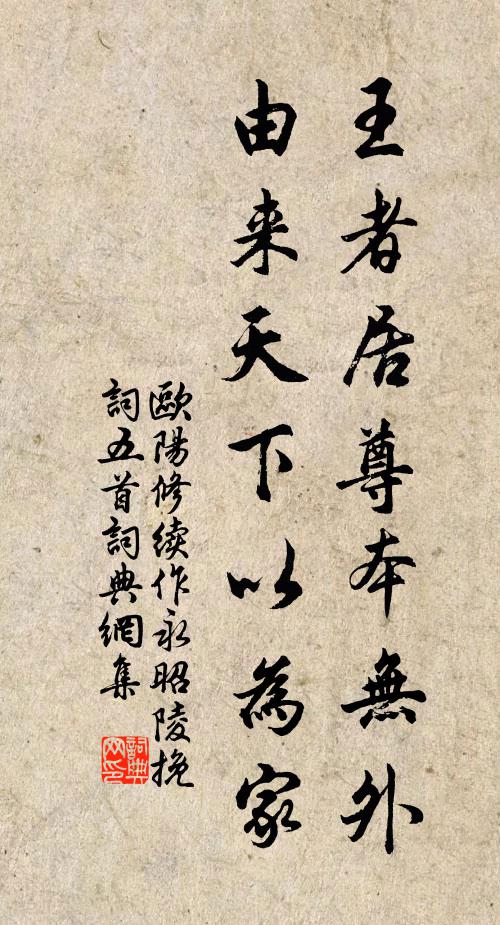 王者居尊本無外
由来天下以為家
歐陽修續作永昭陵挽
詞五首詞典網集
詞典網印